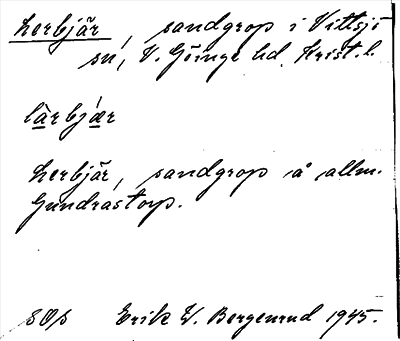 Lerbjär, sandgrop i Vittsjö
sn, V. Göinge hd. Krist. l.
lärbjær
Lerbjär, sandgrop å allm.
Gundrastorp.
SOs Erik W. Bergenrud 1945.